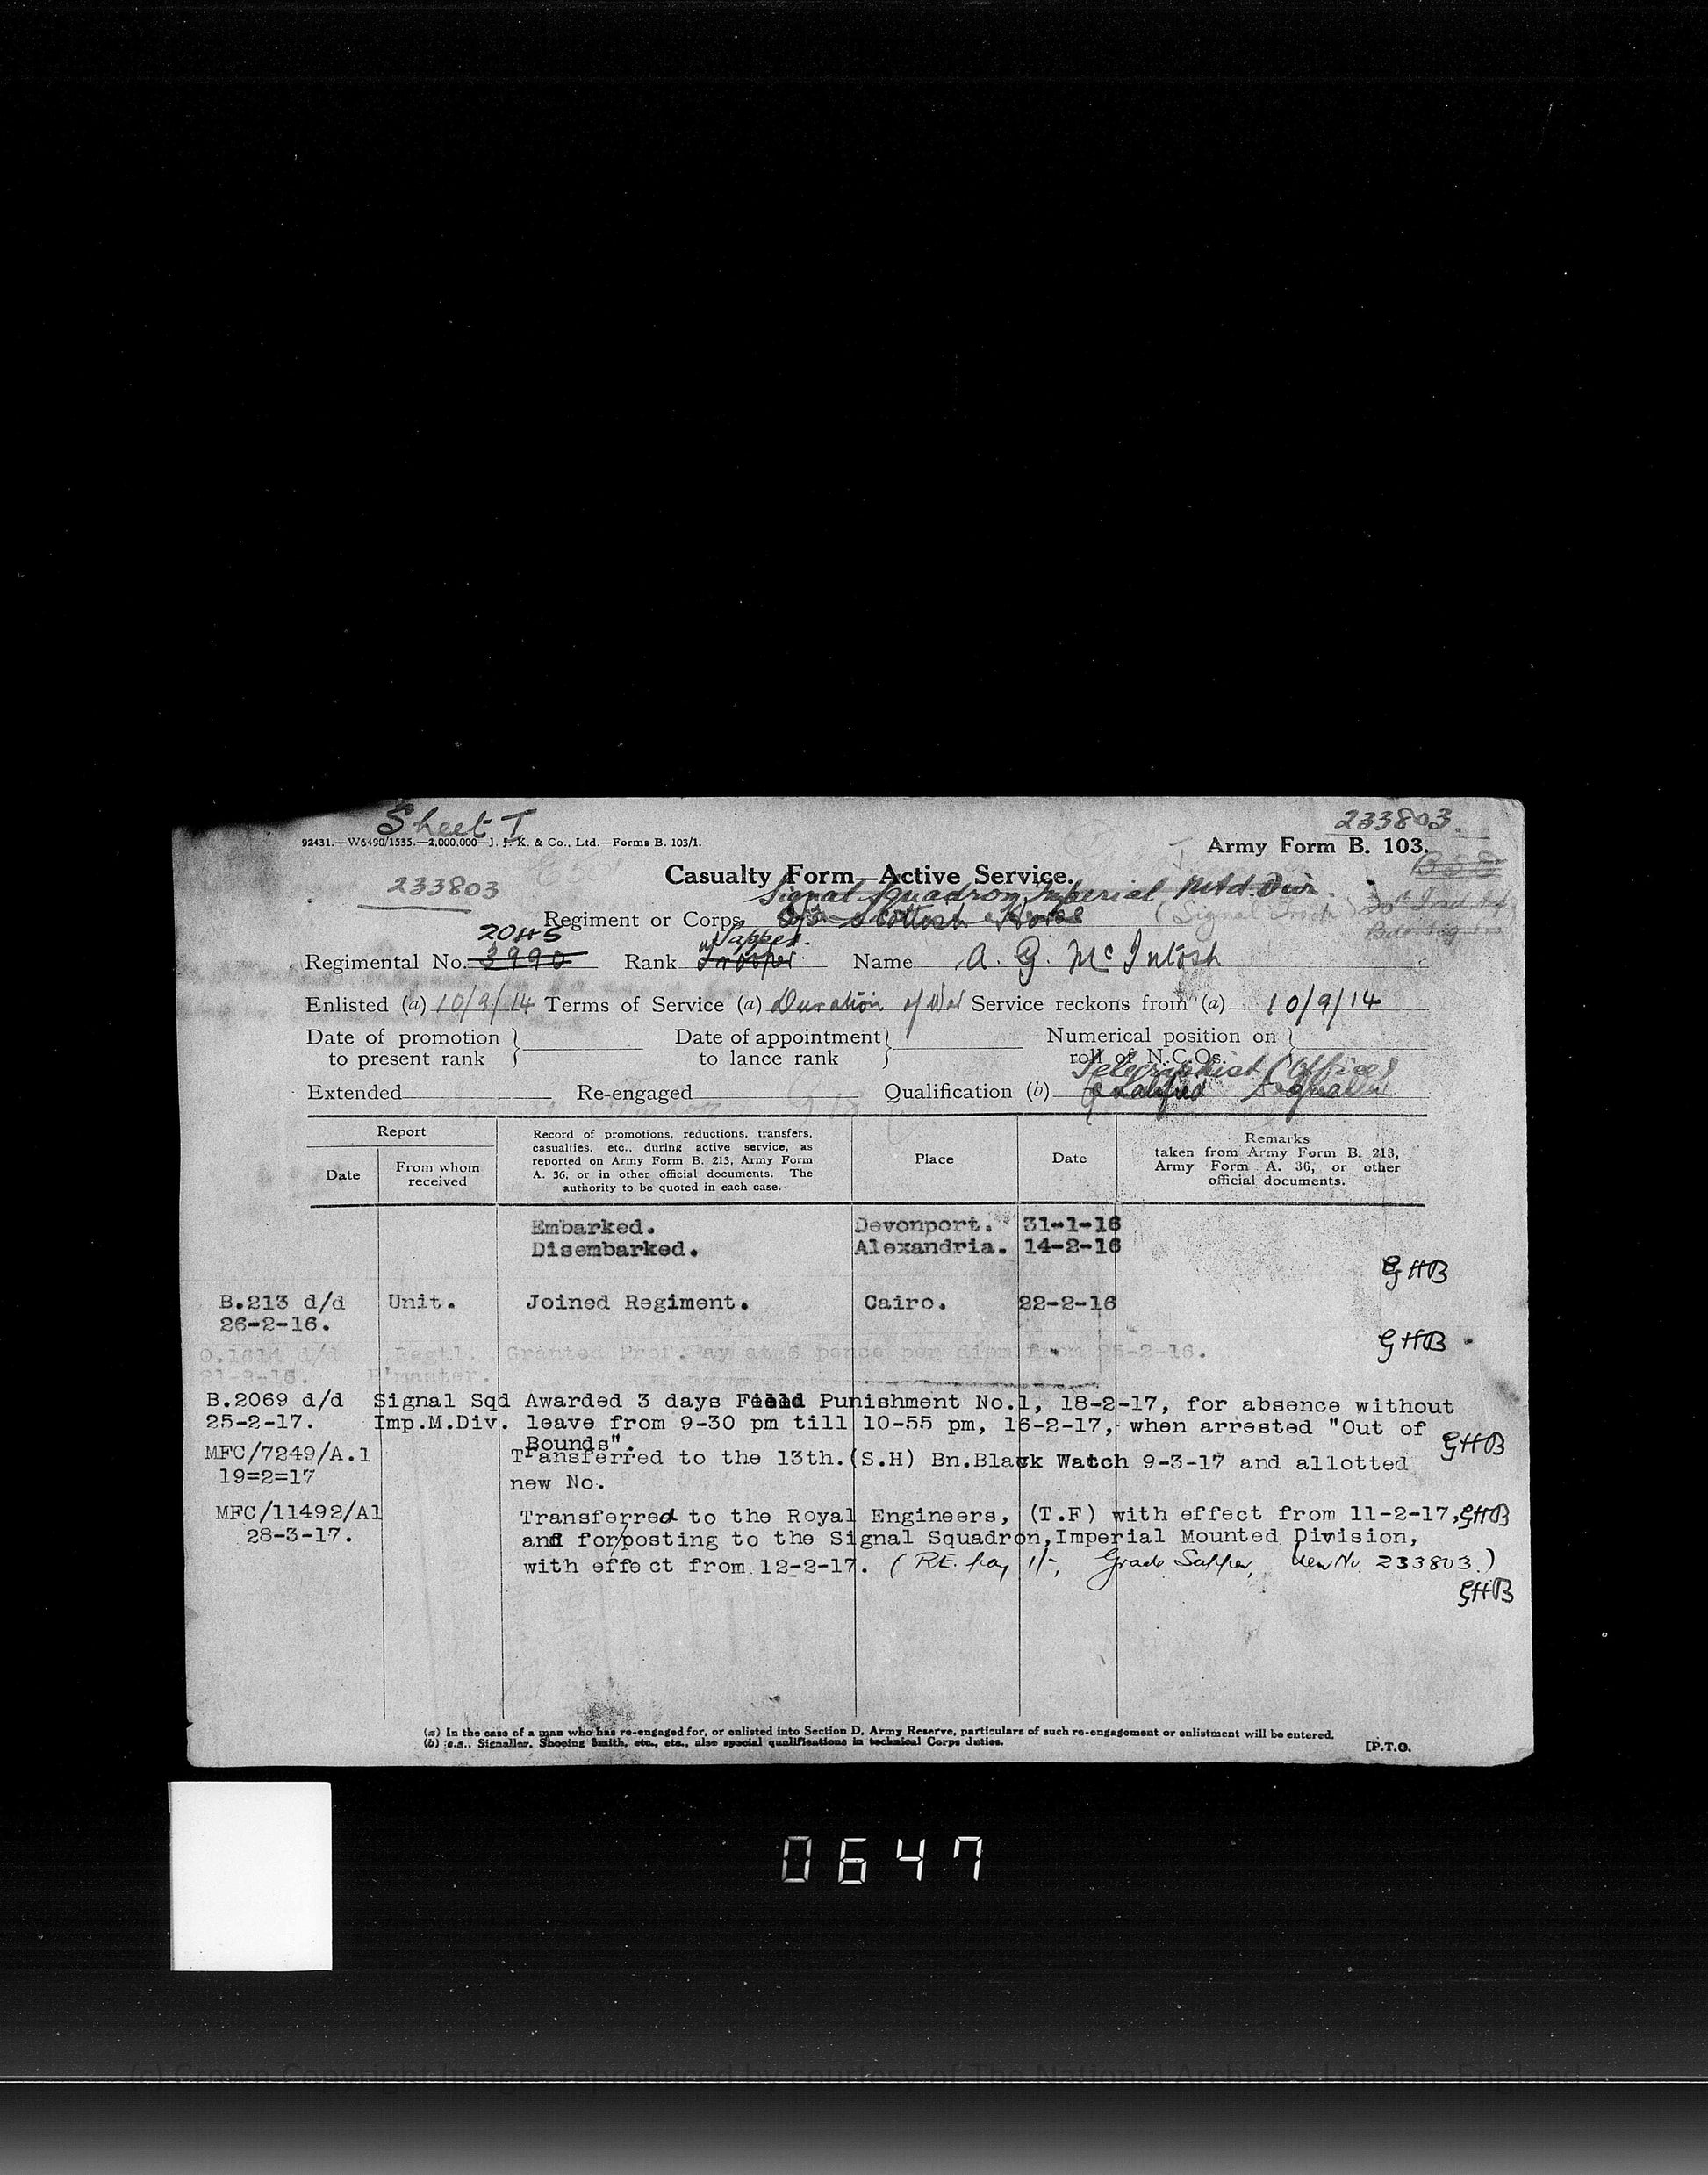 Sheet I
233803.
92431.—W6490/1535.—2,000,000—J. J. K. & Co., Ltd.—Forms B. 103/1.
Army Form B. 103.
Casualty Form—Active Service.
233803
Signal Squadron, Imperial Mtd. Div.
Regiment or Corps Scottish Horse (Signal Troop)
2045 Sapper.
Regimental No. 3990 Rank Trooper Name A. G. McIntosh
Enlisted (a) 10/9/14 Terms of Service (a) Duration of War Service reckons from (a) 10/9/14
Date of promotion to present rank
Date of appointment to lance rank
Numerical position on roll of N.C.Os.
Telegraphist (Office)
Extended Re-engaged Qualification (b) Qualified Signaller
Report
Date
From whom received
Record of promotions, reductions, transfers,
casualties, etc., during active service, as
reported on Army Form B. 213, Army Form
A. 36, or in other official documents. The
authority to be quoted in each case.
Place
Date
Remarks
taken from Army Form B. 213,
Army Form A. 36, or other
official documents.
Embarked. Devonport. 31-1-16
Disembarked. Alexandria. 14-2-16
GHB
B.213 d/d Unit. Joined Regiment. Cairo. 22-2-16
26-2-16.
GHB
d/d Regtl. Granted Prof. Pay at 6 pence per diem from
B.2069 d/d Signal Sqd Awarded 3 days Field Punishment No.1, 18-2-17, for absence without
25-2-17. Imp.M.Div. leave from 9-30 pm till 10-55 pm, 16-2-17, when arrested "Out of
Bounds". GHB
MFC/7249/A.1 Transferred to the 13th.(S.H) Bn.Black Watch 9-3-17 and allotted
19=2=17 new No.
MFC/11492/A1 Transferred to the Royal Engineers, (T.F) with effect from 11-2-17, GHB
28-3-17. and for/posting to the Signal Squadron,Imperial Mounted Division,
with effect from 12-2-17. (R.E. pay 1/-, Grade Sapper, New No. 233803.)
GHB
(a) In the case of a man who has re-engaged for, or enlisted into Section D, Army Reserve, particulars of such re-engagement or enlistment will be entered.
(b) e.g., Signaller, Shoeing Smith, etc., etc., also special qualifications in technical Corps duties.
[P.T.O.
0647
(c) Crown Copyright Images reproduced by courtesy of The National Archives, London, England